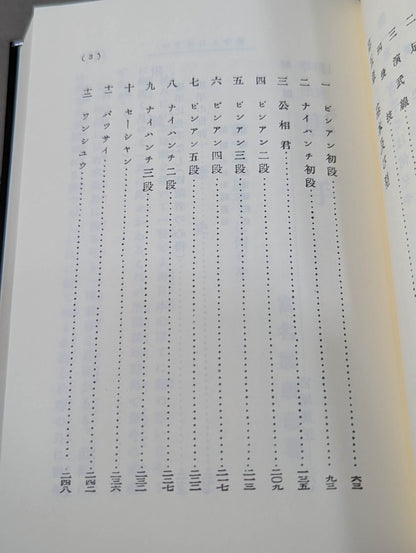 演武線
(3)
一 ピンアン初段……六三
二 ナイハンチ初段……九三
三 公相君……一三五
四 ピンアン二段……二〇九
五 ピンアン三段……二一三
六 ピンアン四段……二一七
七 ピンアン五段……二二二
八 ナイハンチ二段……二二七
九 ナイハンチ三段……二三二
十 セーシャン……二三六
十一 パッサイ……二四二
十二 ワンシュウ……二四八